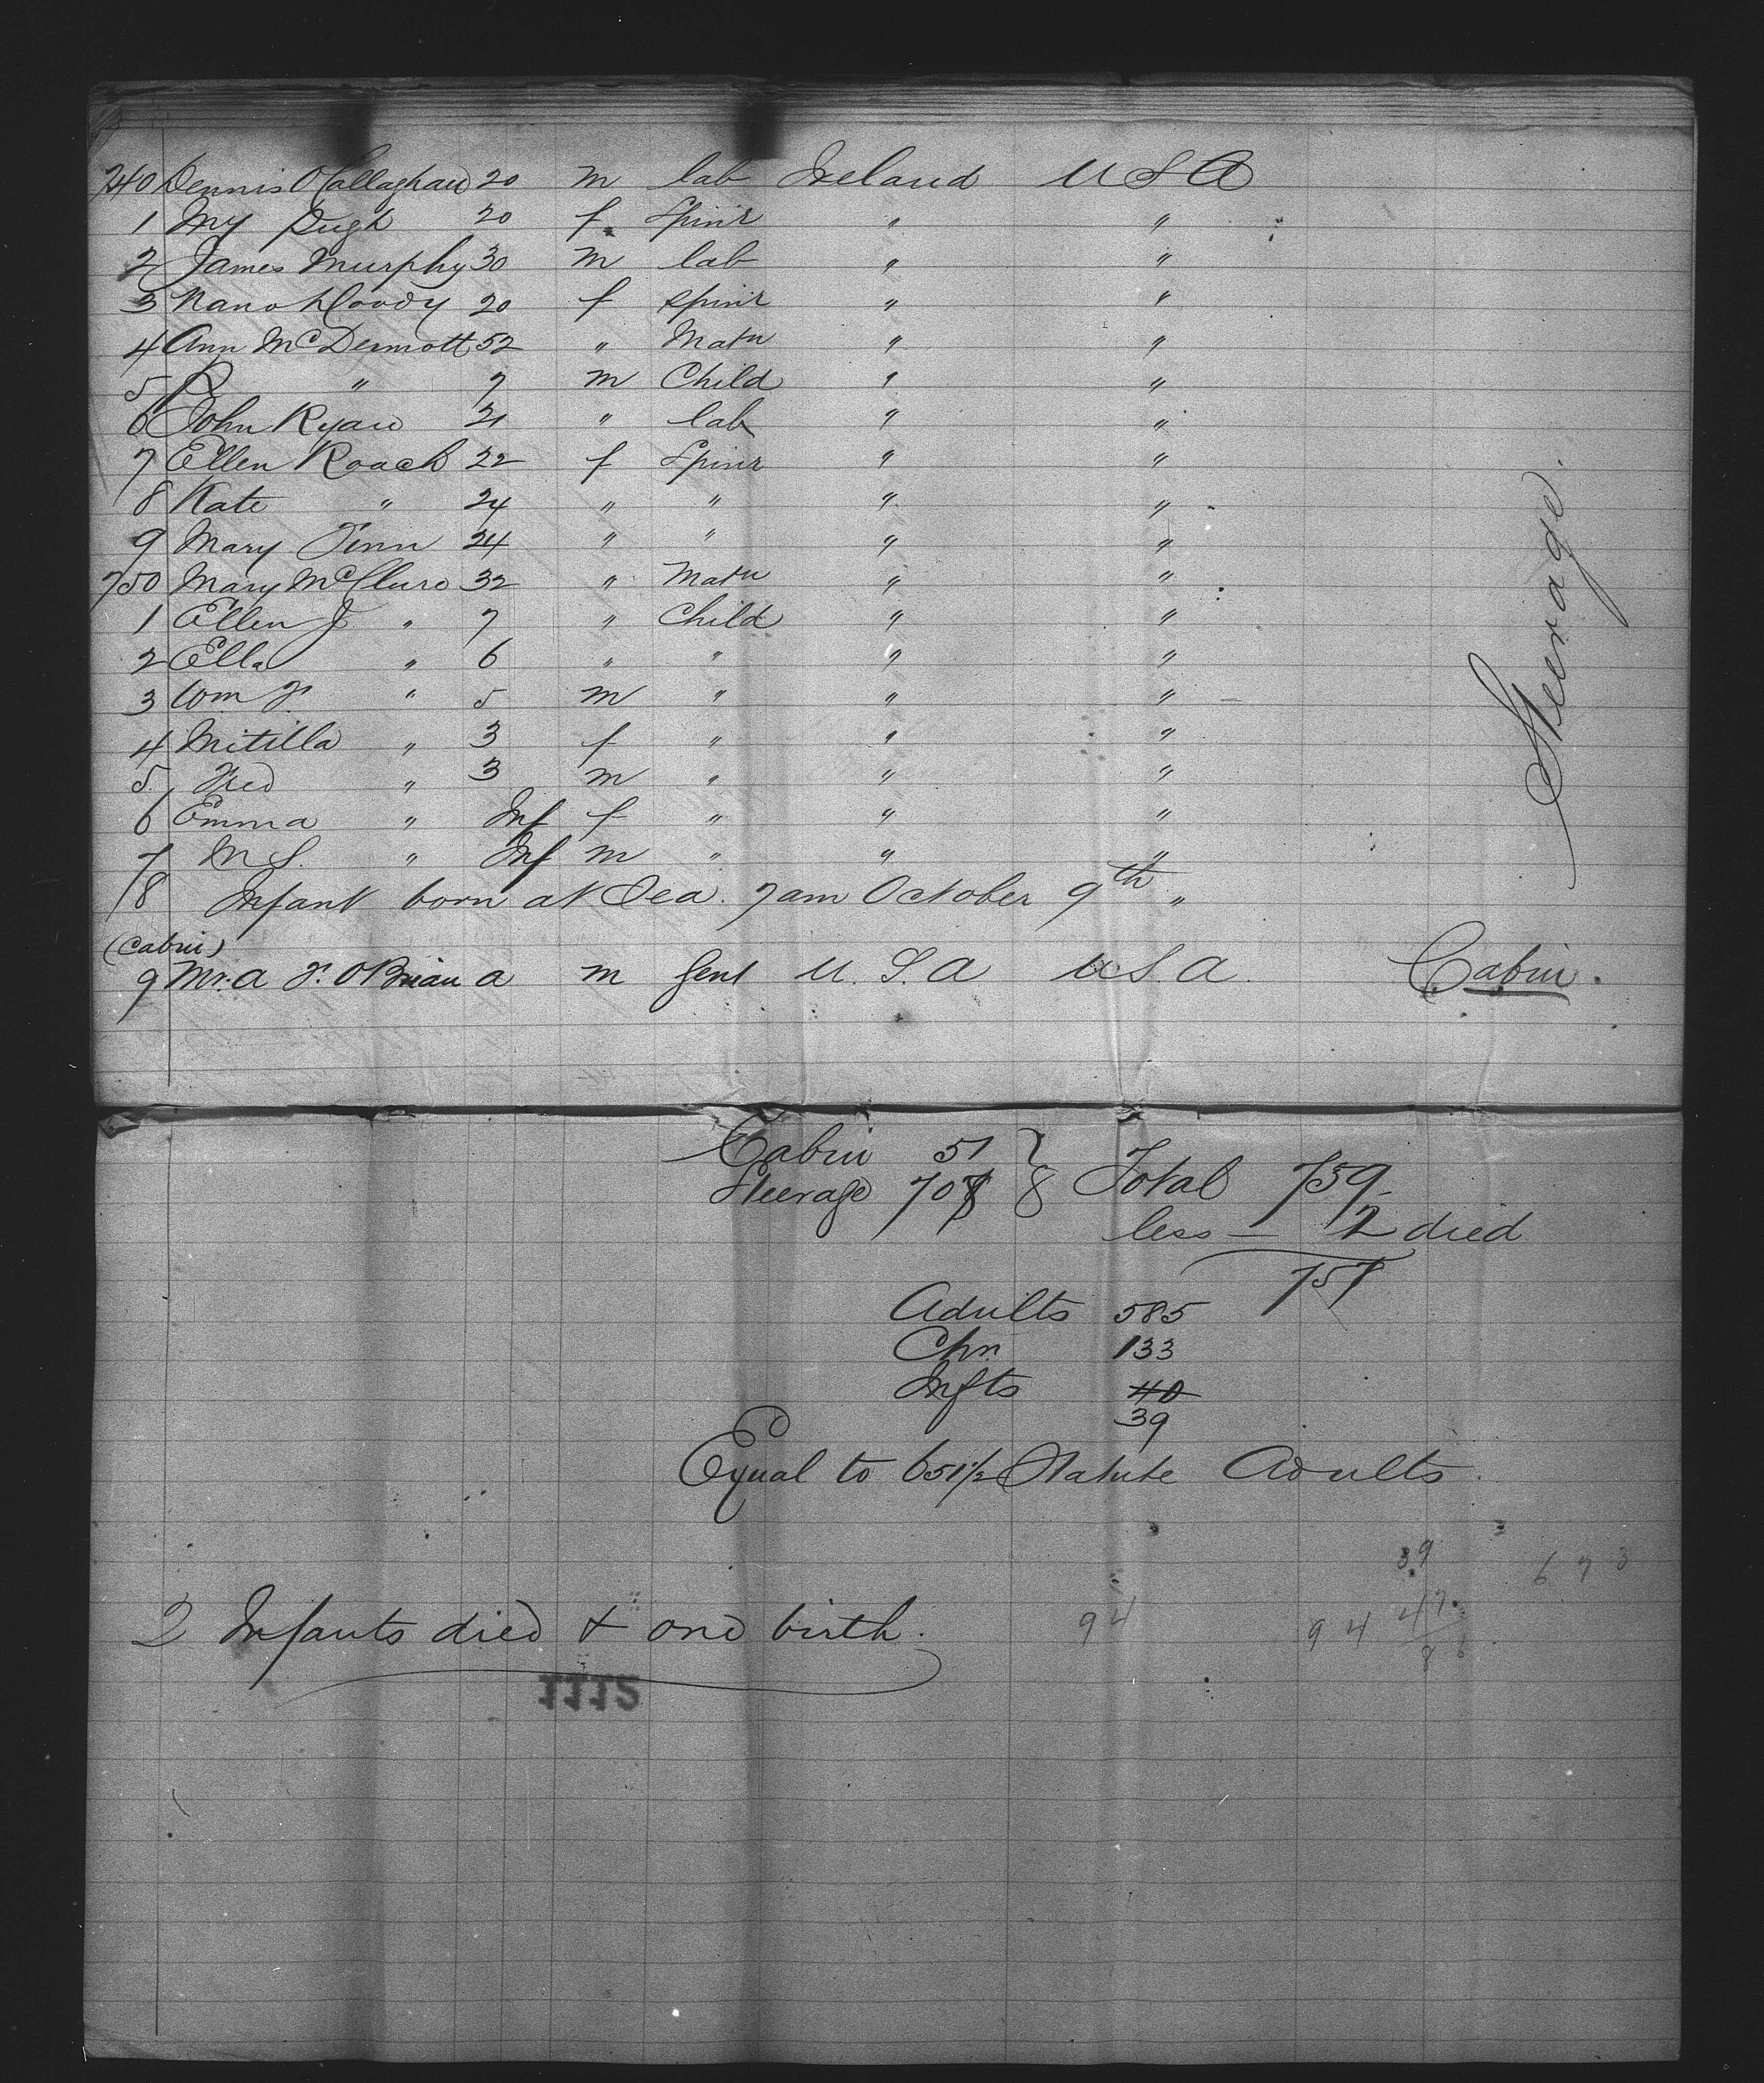 740 Dennis O'Callaghan 20 m lab Ireland U S A
1 My Pugh 20 f Spin'r " "
2 James Murphy 30 m lab " "
3 Nano Doody 20 f Spin'r " "
4 Ann McDermott 52 " Matn " "
5 R " 7 m Child " "
6 John Ryan 21 " lab " "
7 Ellen Roach 22 f Spinr " "
8 Kate " 24 " " " "
9 Mary Finn 24 " " " "
750 Mary McClure 32 " Matn " "
1 Ellen J " 7 " Child " "
2 Ella " 6 " " " "
3 Wm J. " 5 m " " "
4 Mitilla " 3 f " " "
5 Fred " 3 m " " "
6 Emma " Inf f " " "
7 M S. " Inf m " " "
Steerage.
8 Infant born at Sea. 7 am October 9th "
(Cabin)
9 Mr. A F. O'Brian a m Gent U. S. A U S. A. Cabin.
Cabin 51 } Total 759
Steerage 708 8
less — 2 died
757
Adults 585
Chn. 133
Infts 40
39
Equal to 651 1/2 Statute Adults.
39 673
2 Infants died & one birth. 94 94 47
86
1112